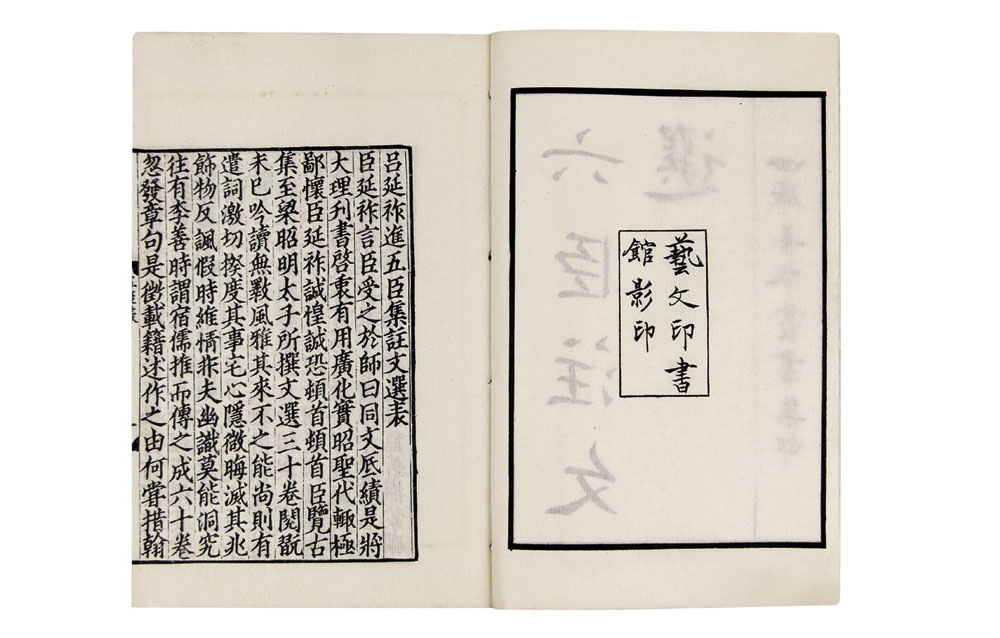 藝文印書
館影印
呂延祚進五臣集註文選表
臣延祚言臣受之於師曰同文厎績是將
大理刊書啓衷有用廣化實昭聖代輙極
鄙懷臣延祚誠惶誠恐頓首頓首臣覽古
集至梁昭明太子所撰文選三十卷閱翫
未已吟讀無斁風雅其來不之能尚則有
遣詞激切揆度其事宅心隱微晦滅其兆
飾物反諷假時維情非夫幽識莫能洞究
往有李善時謂宿儒推而傳之成六十卷
忽發章句是徵載籍述作之由何甞措翰